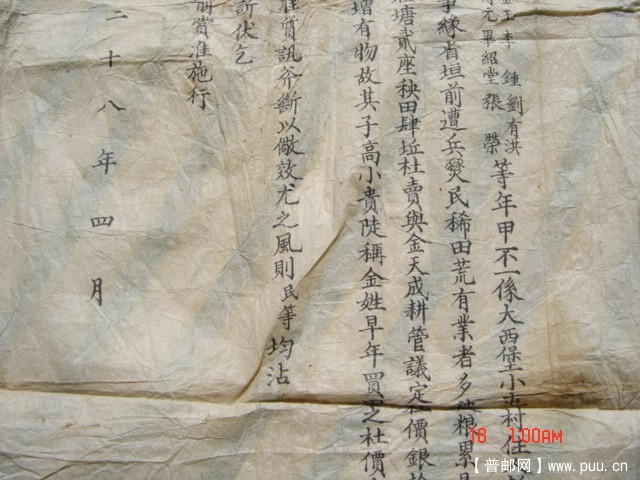 李 鍾 劉有洪
元 畢紹堂 張 榮 等年甲不一係大西堡小 村住
事緣省垣前遭兵燹民稀田荒有業者多 粮累
塘貳座秧田肆坵杜賣與金天成耕管議定 價銀
增有物故其子高小貴陡稱金姓早年買 之杜價
准質訊斧斷以儆效尤之風則民等均沾
伏乞
前賞准施行
二十八年四月
18 1:00AM
【普邮网】www.puu.cn